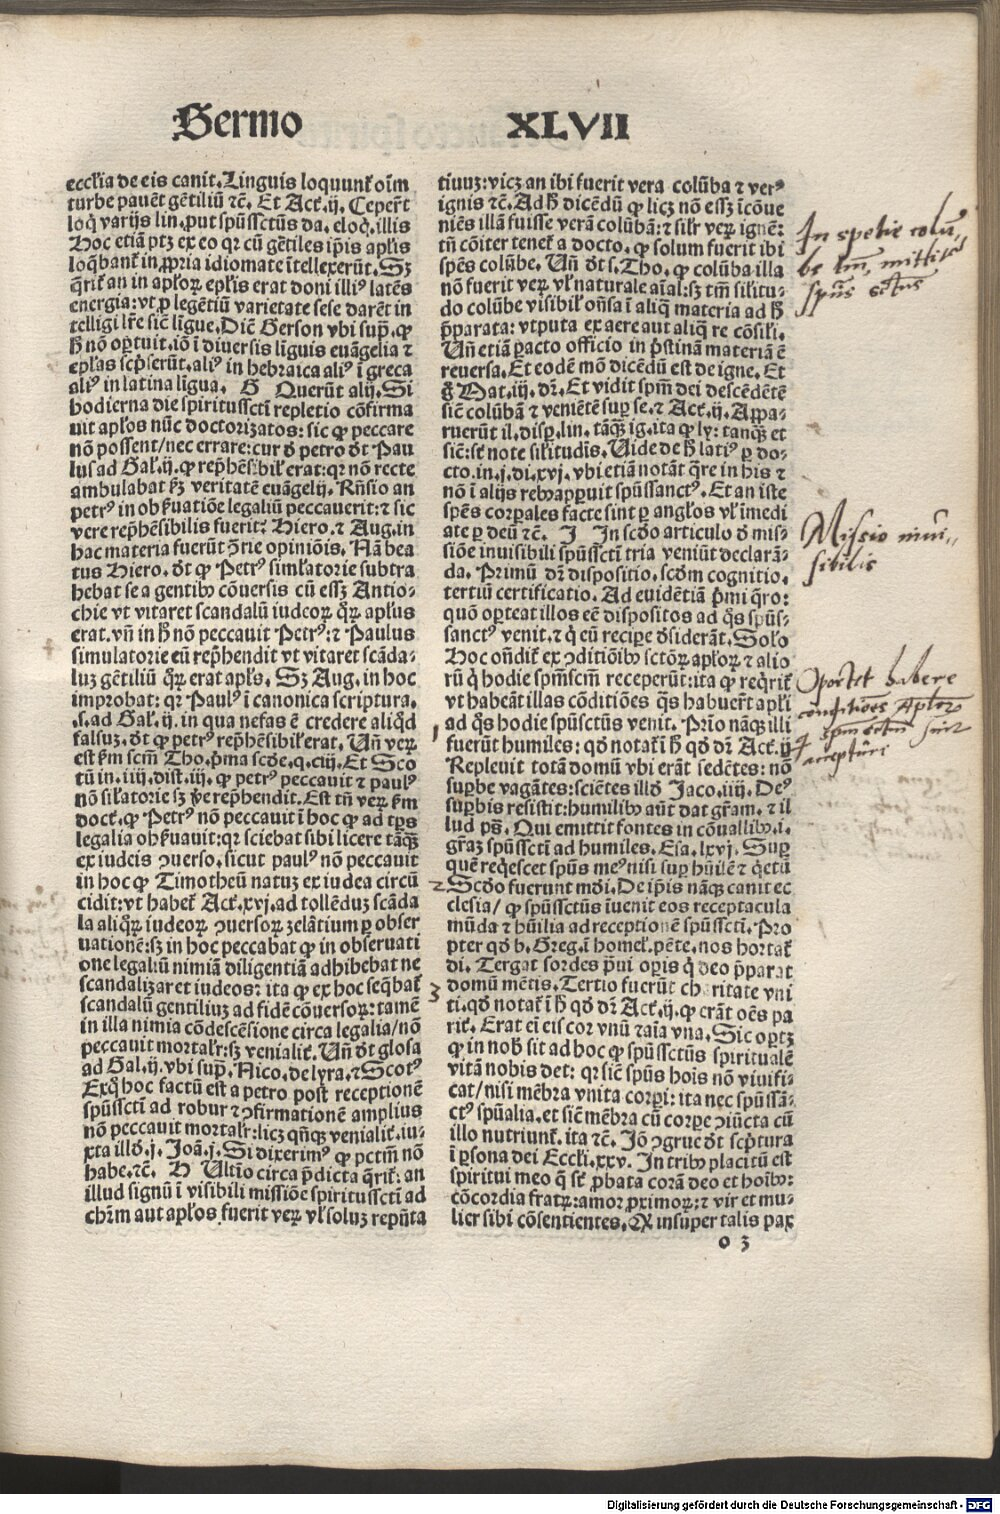 Sermo XLVII
eccl̄ia de eis canit. Linguis loquunt᷑ oīm
turbe pauēt gētiliū ꝛc̄. Et Act᷑.ij. Ceper̄t
loq̄ varijs lin. put spūssctūs da. eloq̄. illis
Hoc etiā ptꝫ ex eo qꝛ cū gētiles ip̄is apl̄is
loq̄bant᷑ in ꝓpria idiomate ītellexerūt. Sꝫ
q̄rit᷑ an in aploꝝ epl̄is erat doni illiꝰ latēs
energia: vt ꝑ legētiū varietate sese darēt in
telligi lr̄e sic̄ līgue. Dic̄ Gerson vbi sup̄. ꝙ
hˀ nō oportuit. iō ī diuersis līguis euāgelia ⁊
epl̄as scp̄serūt. aliꝰ in hebraica aliꝰ ī greca
aliꝰ in latina līgua. G Querūt alij. Si
hodierna die spiritussctī repletio cōfirma
uit apl̄os nūc doctorizatos: sic ꝙ peccare
nō possent/nec errare: cur ð petro ðt Pau
lus ad Gal̄.ij. ꝙ rep̄hēsibil̓ erat: qꝛ nō recte
ambulabat ẜm veritatē euāgelij. Rn̄sio an
petrꝰ in obẜuatiōe legaliū peccauerit: ⁊ sic
vere rep̄hēsibilis fuerit? Hiero. ⁊ Aug. in
hac materia fuerūt ꝯrie opiniōis. Nā bea
tus Hiero. ðt ꝙ Petrꝰ siml̓atorie subtra
hebat se a gentibꝰ cōuersis cū essꝫ Antio-
chie vt vitaret scandalū iudeoꝝ q̄ꝝ apl̄us
erat. vn̄ in hˀ nō peccauit Petrꝰ: ⁊ Paulus
simulatorie eū rep̄hendit vt vitaret scāda-
luꝫ gētiliū q̄ꝝ erat apl̄s. Sꝫ Aug. in hoc
improbat: qꝛ Paulꝰ ī canonica scriptura.
.s. ad Gal̄.ij. in qua nefas ē credere aliq̄d
falsuꝫ. ðt ꝙ petrꝰ rep̄hēsibil̓ erat. Vn̄ veꝝ
est ẜm scm̄ Tho. p̄ma scðe. q. ciij. Et Sco
tū in.iiij. dist.iij. ꝙ petrꝰ peccauit ⁊ paulꝰ
nō sil̓atorie sꝫ ꝟe rep̄hendit. Est tn̄ veꝝ ẜm
doct᷑. ꝙ Petrꝰ nō peccauit ī hoc ꝙ ad tp̄s
legalia obẜuauit: qꝛ sciebat sibi licere tāqꝫ
ex iudeis ꝯuerso. sicut paulꝰ nō peccauit
in hoc ꝙ Timotheū natuꝫ ex iudea circū
cidit: vt habet᷑ Act᷑. xvj. ad tollēduꝫ scāda
la aliq̄ꝝ iudeoꝝ ꝯuersoꝝ zelātium ꝑ obser
uationē: sꝫ in hoc peccabat ꝙ in obseruati
one legaliū nimiā diligentiā adhibebat ne
scandalizaret iudeos: ita ꝙ ex hoc seq̄bat᷑
scandalū gentiliuꝫ ad fidē cōuersoꝝ: tamē
in illa nimia cōdescēsione circa legalia/nō
peccauit mortal̓r: sꝫ venialit᷑. Vn̄ ðt glosa
ad Gal̄.ij. vbi sup̄. Nico. de lyra. ⁊ Scotꝰ
Ex q̄ hoc factū est a petro post receptionē
spūssctī ad robur ⁊ ꝯfirmationē amplius
nō peccauit mortal̓r: licꝫ qn̄qꝫ venialit᷑. iu-
xta illð.j. Joā.j. Si dixerimꝰ ꝙ pctm̄ nō
habe. ꝛc̄. H Vltīo circa p̄dicta q̄rit᷑: an
illud signū ī visibili missiōe spiritussctī ad
chr̄m aut apl̄os fuerit veꝝ vl̓ soluꝫ rep̄nta
tiuuꝫ: vicꝫ an ibi fuerit vera colūba ⁊ verꝰ
ignis ꝛc̄. Ad hˀ dicēdū ꝙ licꝫ nō essꝫ īcōue
niēs illā fuisse verā colūbā: ⁊ sil̓r veꝝ ignē:
tn̄ cōiter tenet᷑ a docto. ꝙ solum fuerit ibi
spēs colūbe. Vn̄ ðt s. Tho. ꝙ colūba illa
nō fuerit veꝝ vl̓ naturale aīal: sꝫ tm̄ sil̓itu-
do colūbe visibil̓ on̄sa ī aliq̄ materia ad hˀ
p̄parata: vtputa ex aere aut aliq̄ re cōsil̓i.
Vn̄ etiā ꝑacto officio in p̄stinā materiā ē
reuersa. Et eodē mō dicēdū est de igne. Et
g̊ Mat.iij. dr̄. Et vidit spm̄ dei descēdētē
sic̄ colūbā ⁊ veniētē suꝑ se. ⁊ Act᷑.ij. Appa-
ruerūt il. disꝑ. lin. tāq̄ꝫ ig. ita ꝙ lyꝫ: tanqꝫ et
sic̄: sēt note sil̓itudis. Vide de hˀ latiꝰ ꝑ do-
cto. in.j. di. xvj. vbi etiā notāt q̄re in his ⁊
nō ī alijs rebꝰ apꝑuit spūssanctꝰ. Et an iste
spēs corꝑales facte sint ꝑ angl̓os vl̓ īmedi
ate ꝑ deū ꝛc̄. J In scðo articulo ð mis-
siōe inuisibili spūssctī tria veniūt declarā-
da. Primū dr̄ dispositio. scðm cognitio.
tertiū certificatio. Ad euidētiā p̄mi q̄ro:
quō oꝑteat illos eē dispositos ad q̄s spūs-
sanctꝰ venit. ⁊ q̄ eū reciꝑe ðsiderāt. Solo
Hoc on̄dit᷑ ex ꝯditiōibꝰ sctōꝝ aploꝝ ⁊ alio
rū q̄ hodie spm̄scm̄ receperūt: ita ꝙ req̄rit᷑
vt habeāt illas cōditiōes q̄s habuer̄t apl̓i
ad q̄s hodie spūsctūs venit. Prīo nāqꝫ illi
fuerūt humiles: qð notat᷑ ī hˀ qð dr̄ Act᷑.ij
Repleuit totā domū vbi erāt sedētes: nō
suꝑbe vagātes: sciētes illð Jaco.iiij. Deꝰ
suꝑbis resistit: humilibꝰ aūt dat gr̄am. ⁊ il
lud ps̄. Qui emittit fontes in cōuallibꝰ.i.
gr̄aꝫ spūssctī ad humiles. Esa. lxvj. Suꝑ
quē reqescet spūs meꝰ nisi suꝑ hūilē ⁊ q̄etū
Scðo fuerunt mūdi. De ip̄is nāqꝫ canit ec
clesia/ ꝙ spūssctūs īuenit eos receptacula
mūda ⁊ hūilia ad receptionē spūssctī. Pro
pter qð b. Greg. ī homel̓. pēte. nos hortat᷑
di. Tergat sordes p̄ui oꝑis q̄ deo p̄parat
domū mētis. Tertio fuerūt charitate vni
ti. qð notat᷑ ī hˀ qð dr̄ Act᷑.ij. ꝙ erāt oēs pa
rit᷑. Erat eī eis cor vnū ⁊ aīa vna. Sic oꝑtꝫ
ꝙ in nob̄ sit ad hoc ꝙ spūssctūs spiritualē
vitā nobis det: qꝛ sic̄ spūs hoīs nō viuifi-
cat/nisi mēbra vnita corꝑi: ita nec spūssā-
ctꝰ spūalia. et sic̄ mēbra cū corꝑe ꝯiūcta cū
illo nutriunt᷑. ita ꝛc̄. Jō ꝯgrue ðt scp̄tura
ī ꝑsona dei Eccl̓i. xxv. In tribꝰ placitū est
spiritui meo q̄ sēt ꝓbata corā deo et hoībꝰ:
cōcordia fratꝝ: amor ꝓximoꝝ: ⁊ vir et mu-
lier sibi cōsentientes. Et insuꝑ talis pax
o 3
In spetie colū
be tm̄, mittitᷣ
spūs sctūs
Missio inui-
sibilis
Oportet habere
conditiōes Aplōꝝ
q spm̄ sctm̄ sint
accepturi
2
3
Digitalisierung gefördert durch die Deutsche Forschungsgemeinschaft - DFG